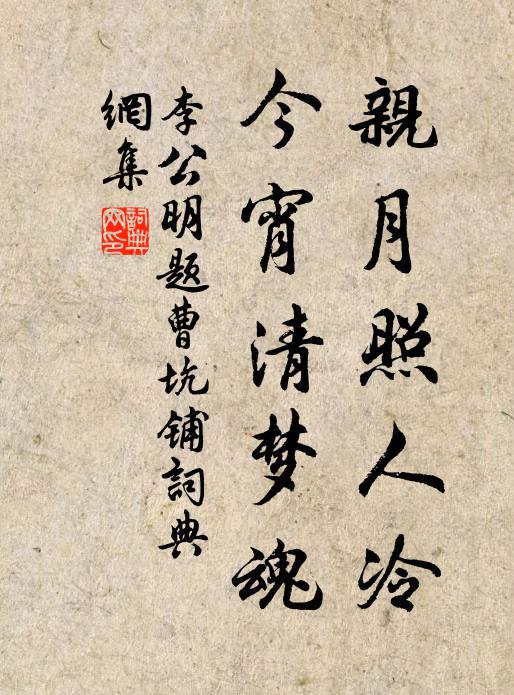 親月照人冷
今宵清梦魂
李公明题曹坑铺詞典
網集
詞典
网印